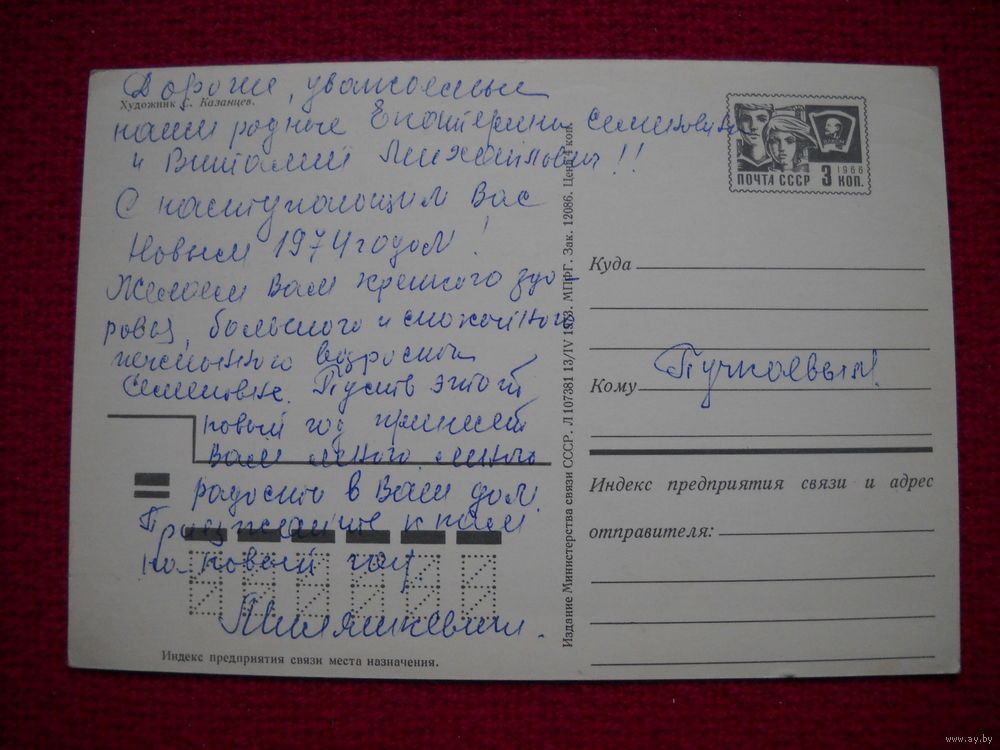 Дорогие, уважаемые
Художник С. Казанцев.
наши родные Екатерина Семеновна
и Виталий Михайлович!!
С наступающим Вас
Новым 1974 годом!
Желаем Вам крепкого здо-
ровья, большого и спокойного
Семеновне. Пусть этот
новый год принесет
Вам много, много
радости в Ваш дом.
Приезжайте к нам
на новый год.
Индекс предприятия связи места назначения.
Издание Министерства связи СССР. Л 107381 13/IV 1973. МПФГ. Зак. 12086. Цена 4 коп.
ПОЧТА СССР 3 КОП.
1966
Куда
Кому Пучкаевым
Индекс предприятия связи и адрес
отправителя:
www.ay.by